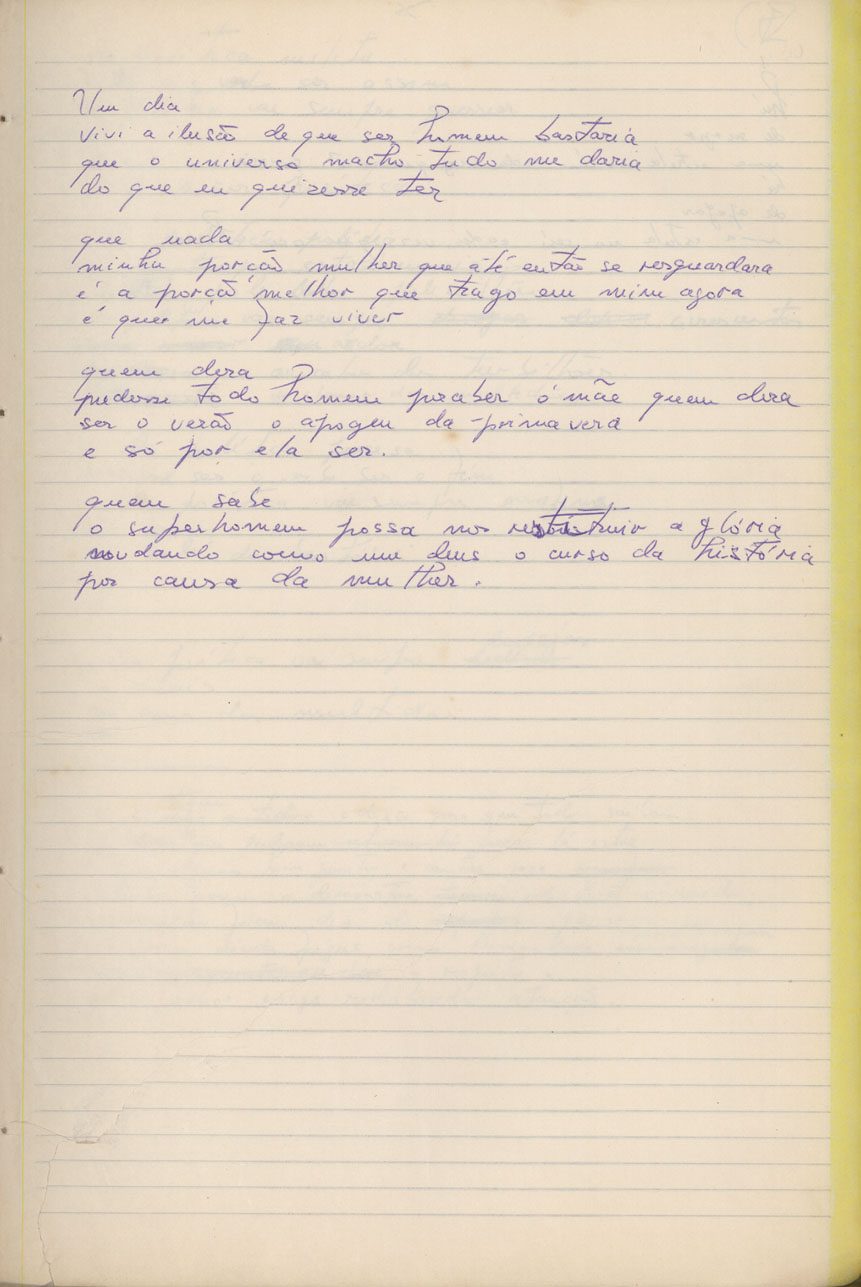 Um dia
vivi a ilusão de que ser homem bastaria
que o universo macho tudo me daria
do que eu quizesse ter
que nada
minha porção mulher que até então se resguardara
é a porção melhor que trago em mim agora
é que me faz viver
quem dera
pudesse todo homem praber ó mãe quem dera
ser o verão o apogeu da primavera
e só por ela ser.
quem sabe
o superhomem possa nos restituir a glória
mudando como um deus o curso da história
por causa da mulher.